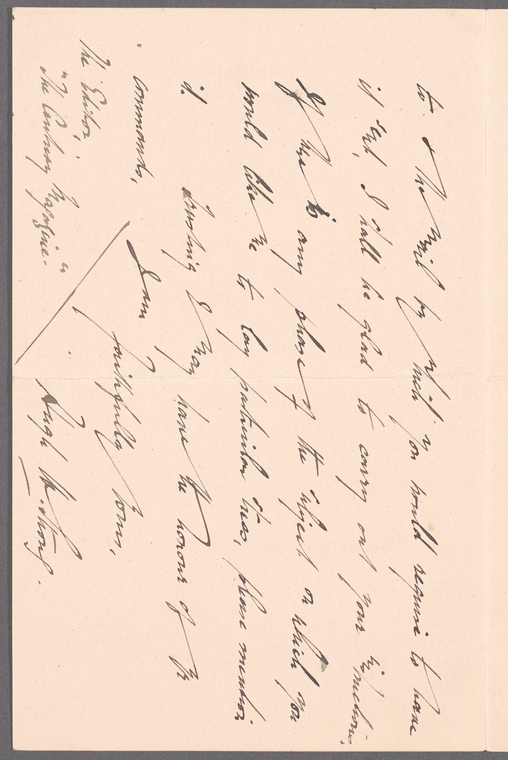 to & the Mail by which you would require to have
it sent, I shall be glad to carry out your instructions.
If there is any phase of the subject on which you
would like me to lay particular stress, please mention
it.
Trusting I may have the honour of yr
commands,
I am
faithfully Yours,
Hugh
The Editor,
"The Century Magazine."